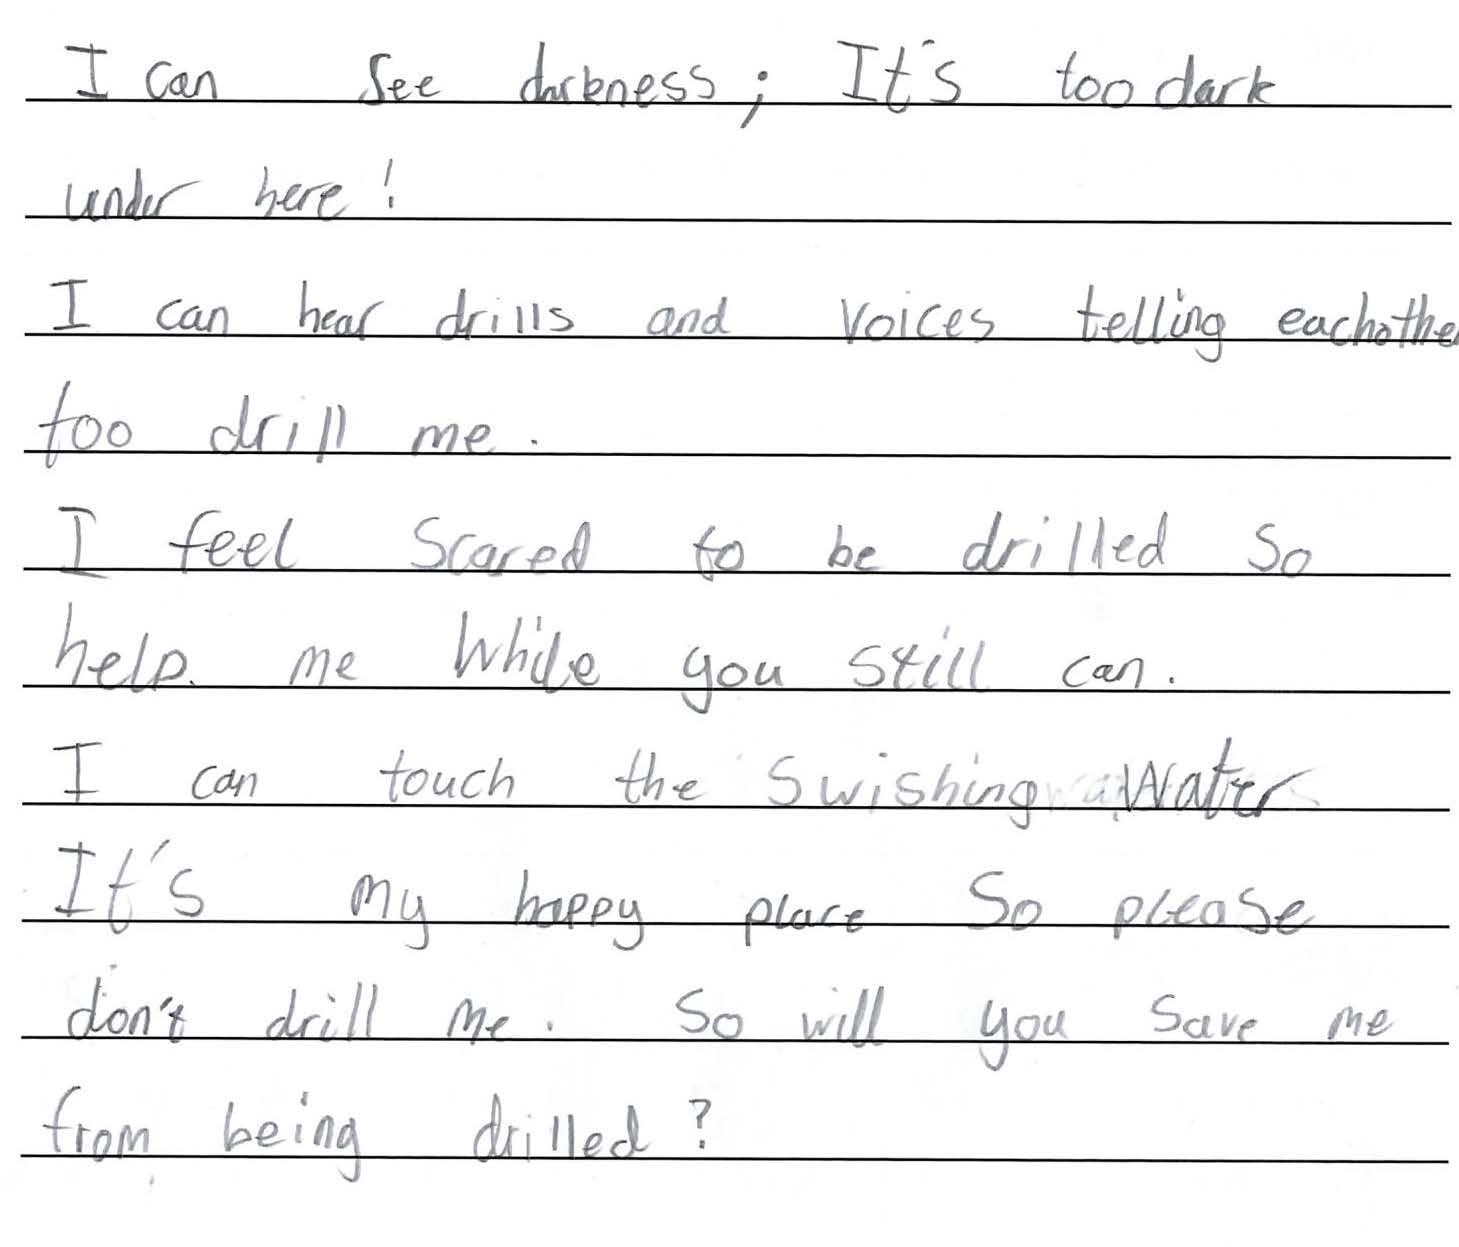 I can see darkness; It's too dark
under here!
I can hear drills and voices telling eachother
too drill me.
I feel scared to be drilled so
help me while you still can.
I can touch the swishing water
It's my happy place so please
don't drill me. So will you save me
from being drilled?